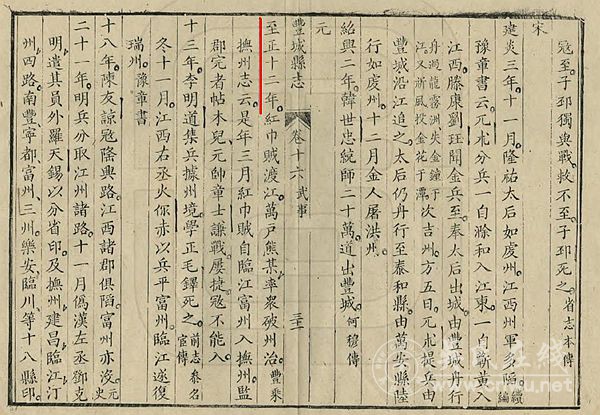 寇至子邳獨與戰救不至子邳死之省志本傳
宋
建炎三年十一月隆祐太后如虔州江西州軍多陷續編
豫章書云元朮分兵一自滁和入江東一自蘄黃入
江西滕康劉珏聞金兵至奏太后出城由豐城丹行
丹過龍霧洲失金鐘于江又祈風投金花于潭次吉州方五日元朮提兵由
豐城沿江追之太后仍丹行至泰和縣由萬安縣陸
行如虔州十二月金人屠洪州
紹興二年韓世忠統師二十萬道出豐城何穆傳
元
豐城縣志
卷十六
武事
至正十二年紅巾賊渡江萬戶熊某率衆破州治豐乘
撫州志云是年三月紅巾賊自臨江富州入撫州監
郡完者帖木兒元帥章士謙戰屢捷寇不能入
十三年李明道集兵據州境學正毛鐸死之前志參名宦傳
冬十一月江西右丞火你赤以兵平富州臨江遂復
瑞州豫章書
十八年陳友諒寇隆興路江西諸郡俱陷富州亦沒元史
二十一年明兵分取江州諸路十一月僞漢左丞鄧克
明遣其員外羅天錫以分省印及撫州建昌臨江汀
州四路南豐寧都富州三州樂安臨川等十八縣印